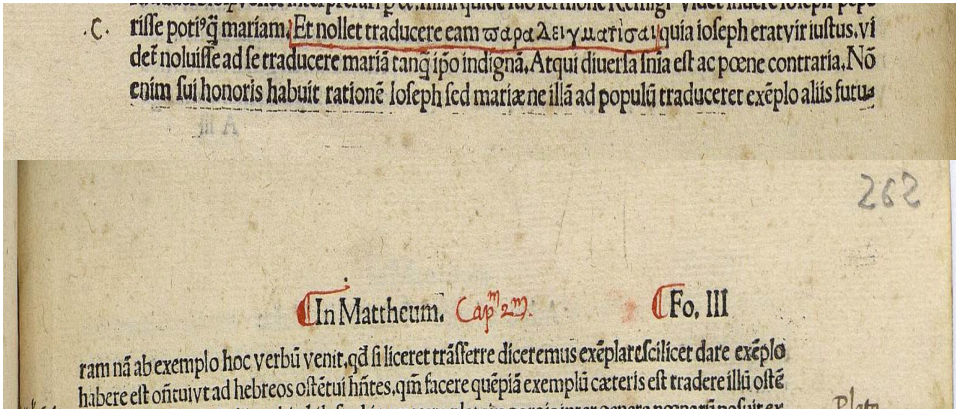 .C. risse poti⁹q̃ mariam. Et nollet traducere eam ϖαραλειγματίσαι quia ioseph erat vir iustus. vi
det̃ noluisse ad se traducere mariã tanq̃ ip̃o indignã. Atqui diuersa s̃nia est ac pœne contraria. Nõ
enim sui honoris habuit rationẽ Ioseph sed mariæ ne illã ad populũ traduceret exẽplo aliis futu-
262
In Mattheum. Cap^m 2^m. Fo. III
ram nã ab exemplo hoc verbũ venit, qd̃ si liceret trãsferre diceremus exẽplare scilicet dare exẽplo
habere est oñtui vt ad hebreos ostẽtui hñtes, qm̃ facere quẽpiã exemplũ cæteris est tradere illũ ostẽ
Plato